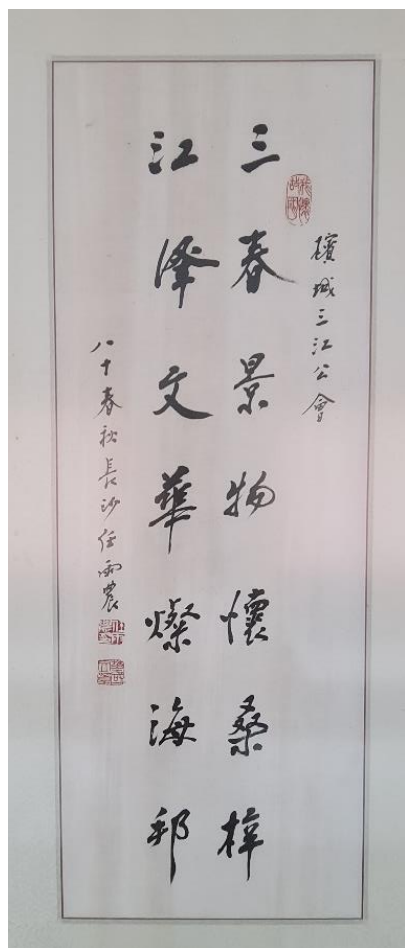 檳城三江公會
三春景物懷桑梓
江澤文華燦海邦
八十春秋長沙任雨農